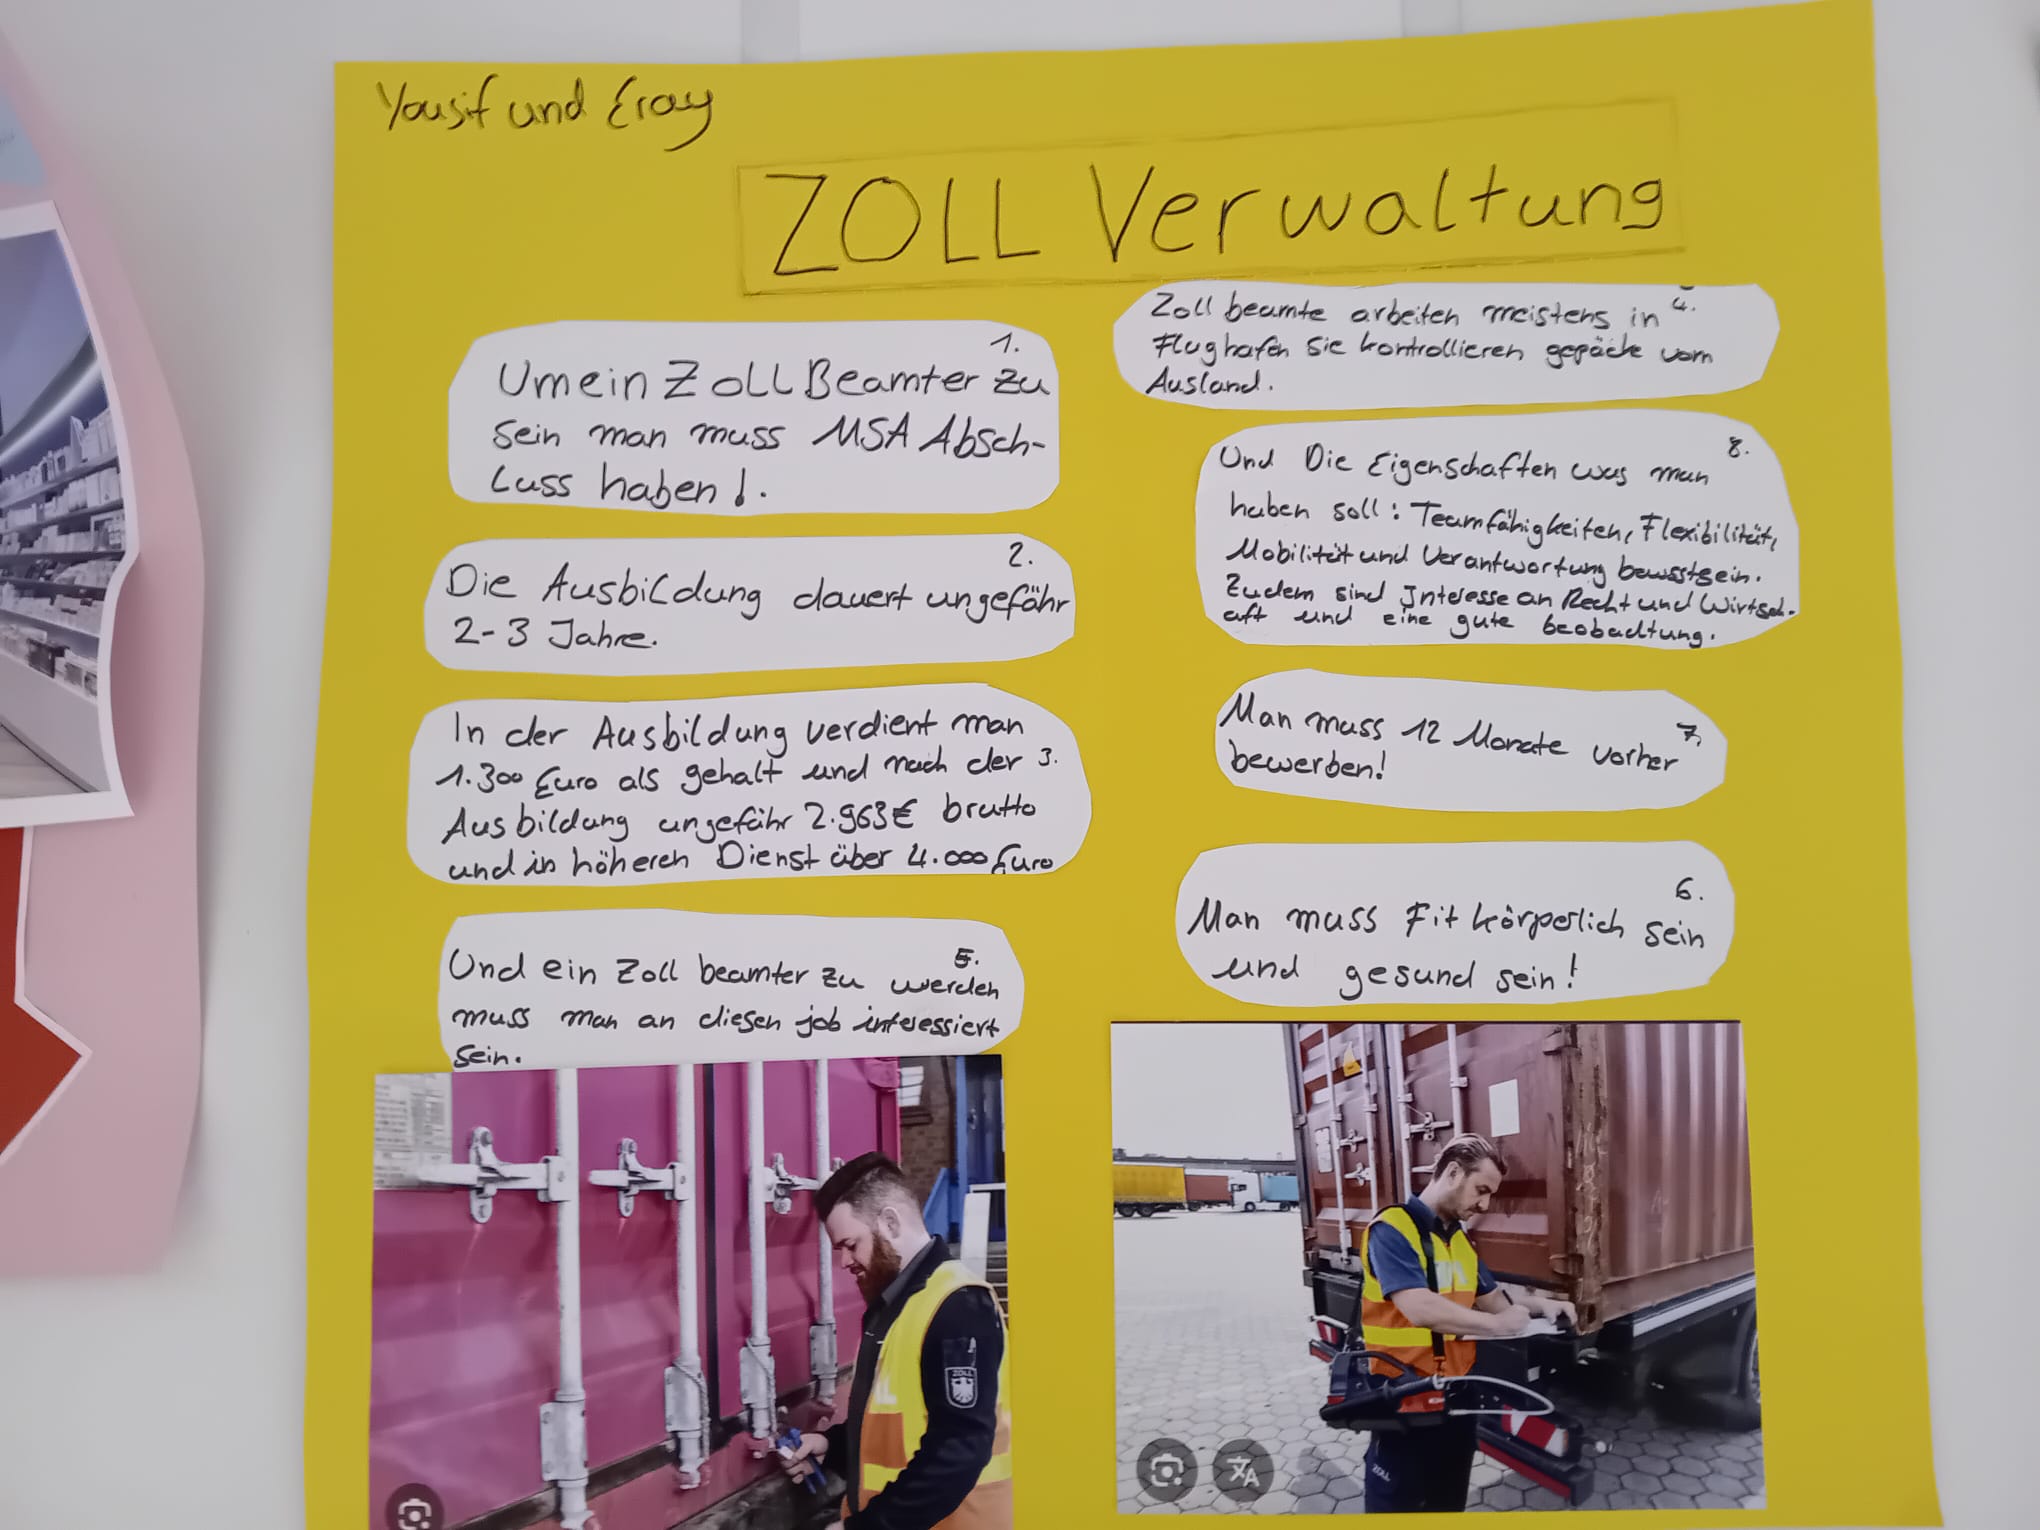 Yousif und Eray
ZOLL Verwaltung
1.
Um ein ZOLL Beamter zu
sein man muss MSA Absch-
luss haben!.
2.
Die Ausbildung dauert ungefähr
2-3 Jahre.
In der Ausbildung verdient man
1.300 Euro als gehalt und nach der 3.
Ausbildung ungefähr 2.963€ brutto
und in höheren Dienst über 4.000 Euro
5.
Und ein Zoll beamter zu werden
muss man an diesen job interessiert
sein.
Zoll beamte arbeiten meistens in 4.
Flughafen Sie kontrollieren gepäck vom
Ausland.
8.
Und Die Eigenschaften was man
haben soll: Teamfähigkeiten, Flexibilität,
Mobilität und Verantwortung bewsstsein.
Zudem sind Interesse an Recht und Wirtsch-
aft und eine gute beobachtung.
Man muss 12 Monate vorher 7.
bewerben!
6.
Man muss Fit körperlich sein
und gesund sein!
ZOLL
ZOLL